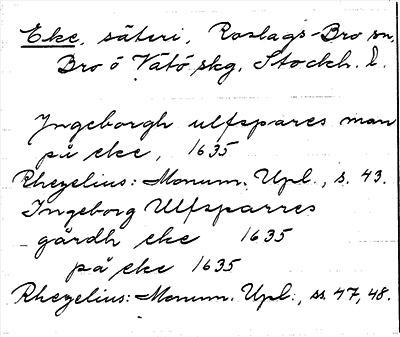 Eke, säteri, Roslags-Bro sn,
Bro o Vätö skg, Stockh. l.
Jngeborgh ulfspares man
på eke, 1635
Rhezelius: Monum. Upl., s. 43.
Ingeborg Ulfsparres
gårdh eke 1635
på eke 1635
Rhezelius: Monum. Upl., ss. 47, 48.